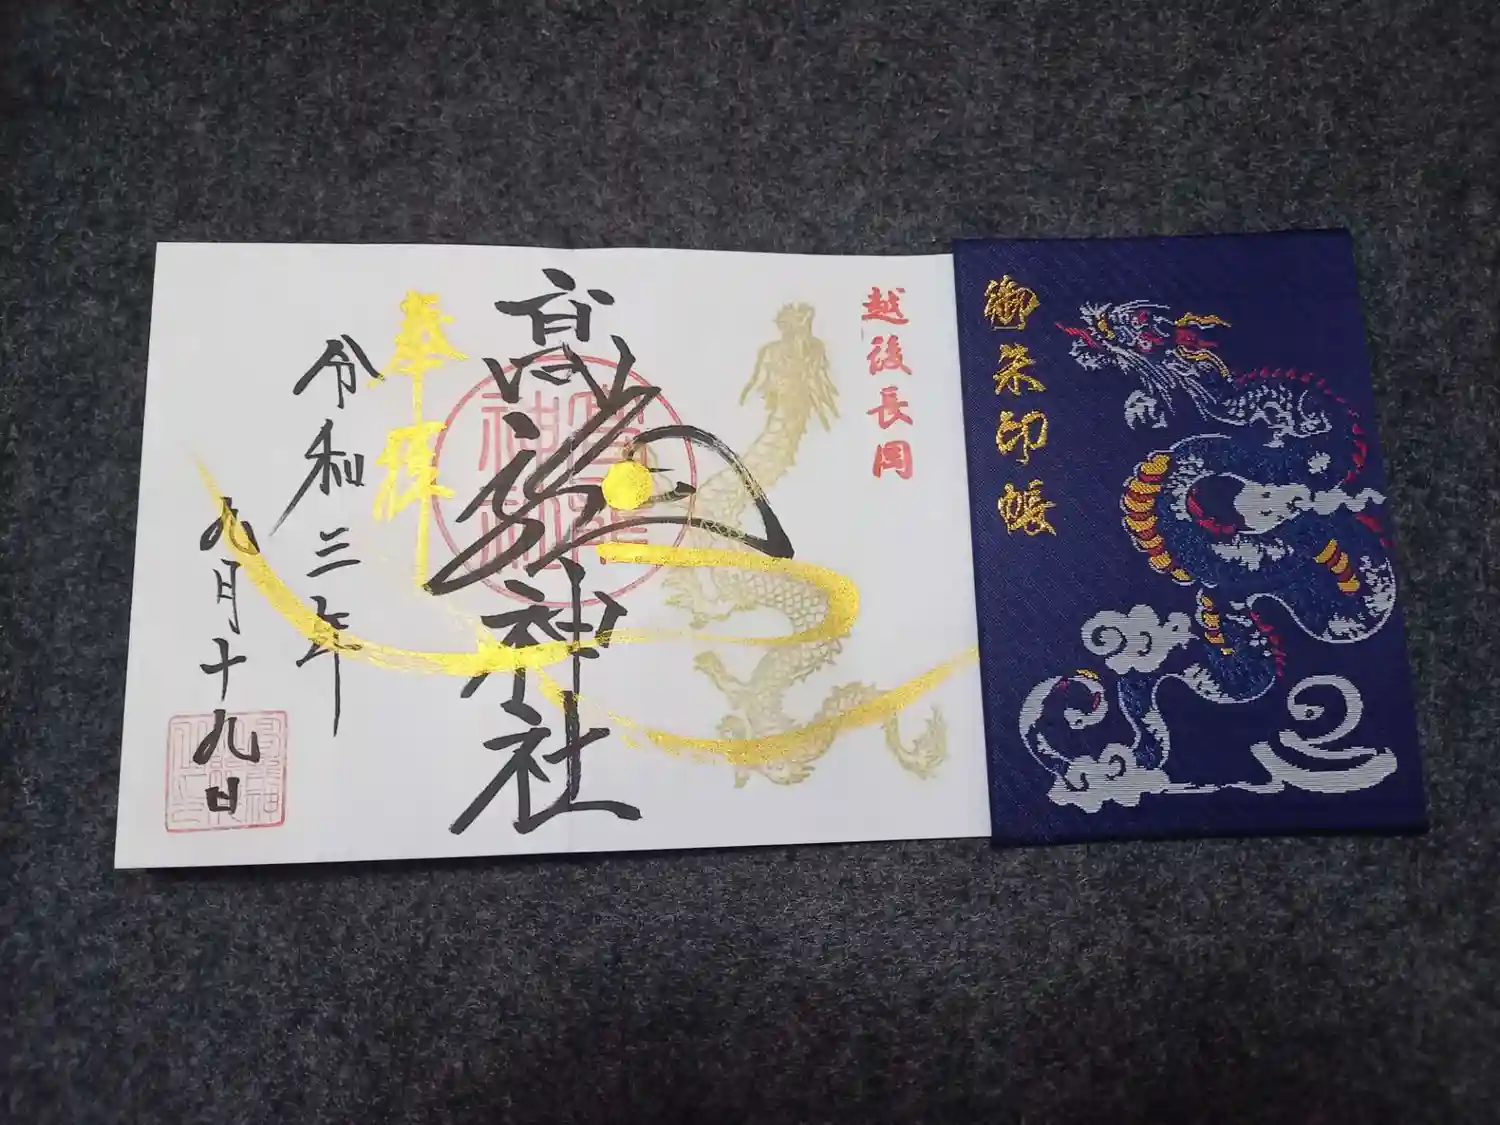 御朱印帳
越後長岡
高龍神社
奉拝
令和三年
九月十九日